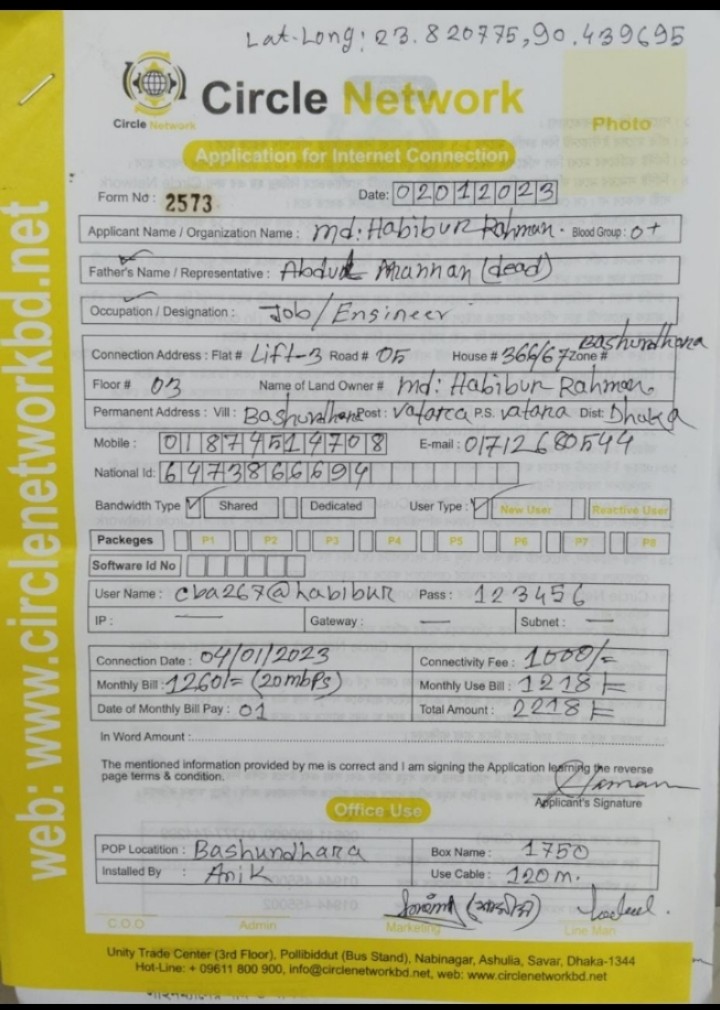 Lat-Long: 23.820775,90.439695
Circle Network
Circle Network
Photo
Application for Internet Connection
Form No : 2573
Date: 02012023
Applicant Name / Organization Name : md: Habibur Rahman. Blood Group: O+
Father's Name / Representative : Abdul Mannan (dead)
Occupation / Designation : Job/Ensineer
Connection Address : Flat # Lift-3 Road # 05 House # 366/67 Zone # Bashundhara
Floor # 03 Name of Land Owner # md: Habibur Rahman.
Permanent Address : Vill : Bashundhara Post : Vatara P.S. vatara Dist: Dhaka
Mobile : 01874514708 E-mail : 01712680544
National Id: 6473866694
Bandwidth Type Shared Dedicated User Type : New User Reactive User
Packeges P1 P2 P3 P4 P5 P6 P7 P8
Software Id No
User Name : cba267@habibur Pass : 123456
IP : — Gateway : — Subnet : —
Connection Date : 04/01/2023 Connectivity Fee : 1000/=
Monthly Bill : 1260/= (20mbps) Monthly Use Bill : 1218/=
Date of Monthly Bill Pay : 01 Total Amount : 2218/=
In Word Amount :
The mentioned information provided by me is correct and I am signing the Application learning the reverse
page terms & condition.
Applicant's Signature
Office Use
POP Locatition : Bashundhara Box Name : 1750
Installed By : Anik Use Cable : 120 m.
C.O.O Admin Marketing Line Man
Unity Trade Center (3rd Floor), Pollibiddut (Bus Stand), Nabinagar, Ashulia, Savar, Dhaka-1344
Hot-Line: + 09611 800 900, info@circlenetworkbd.net, web: www.circlenetworkbd.net
web: www.circlenetworkbd.net